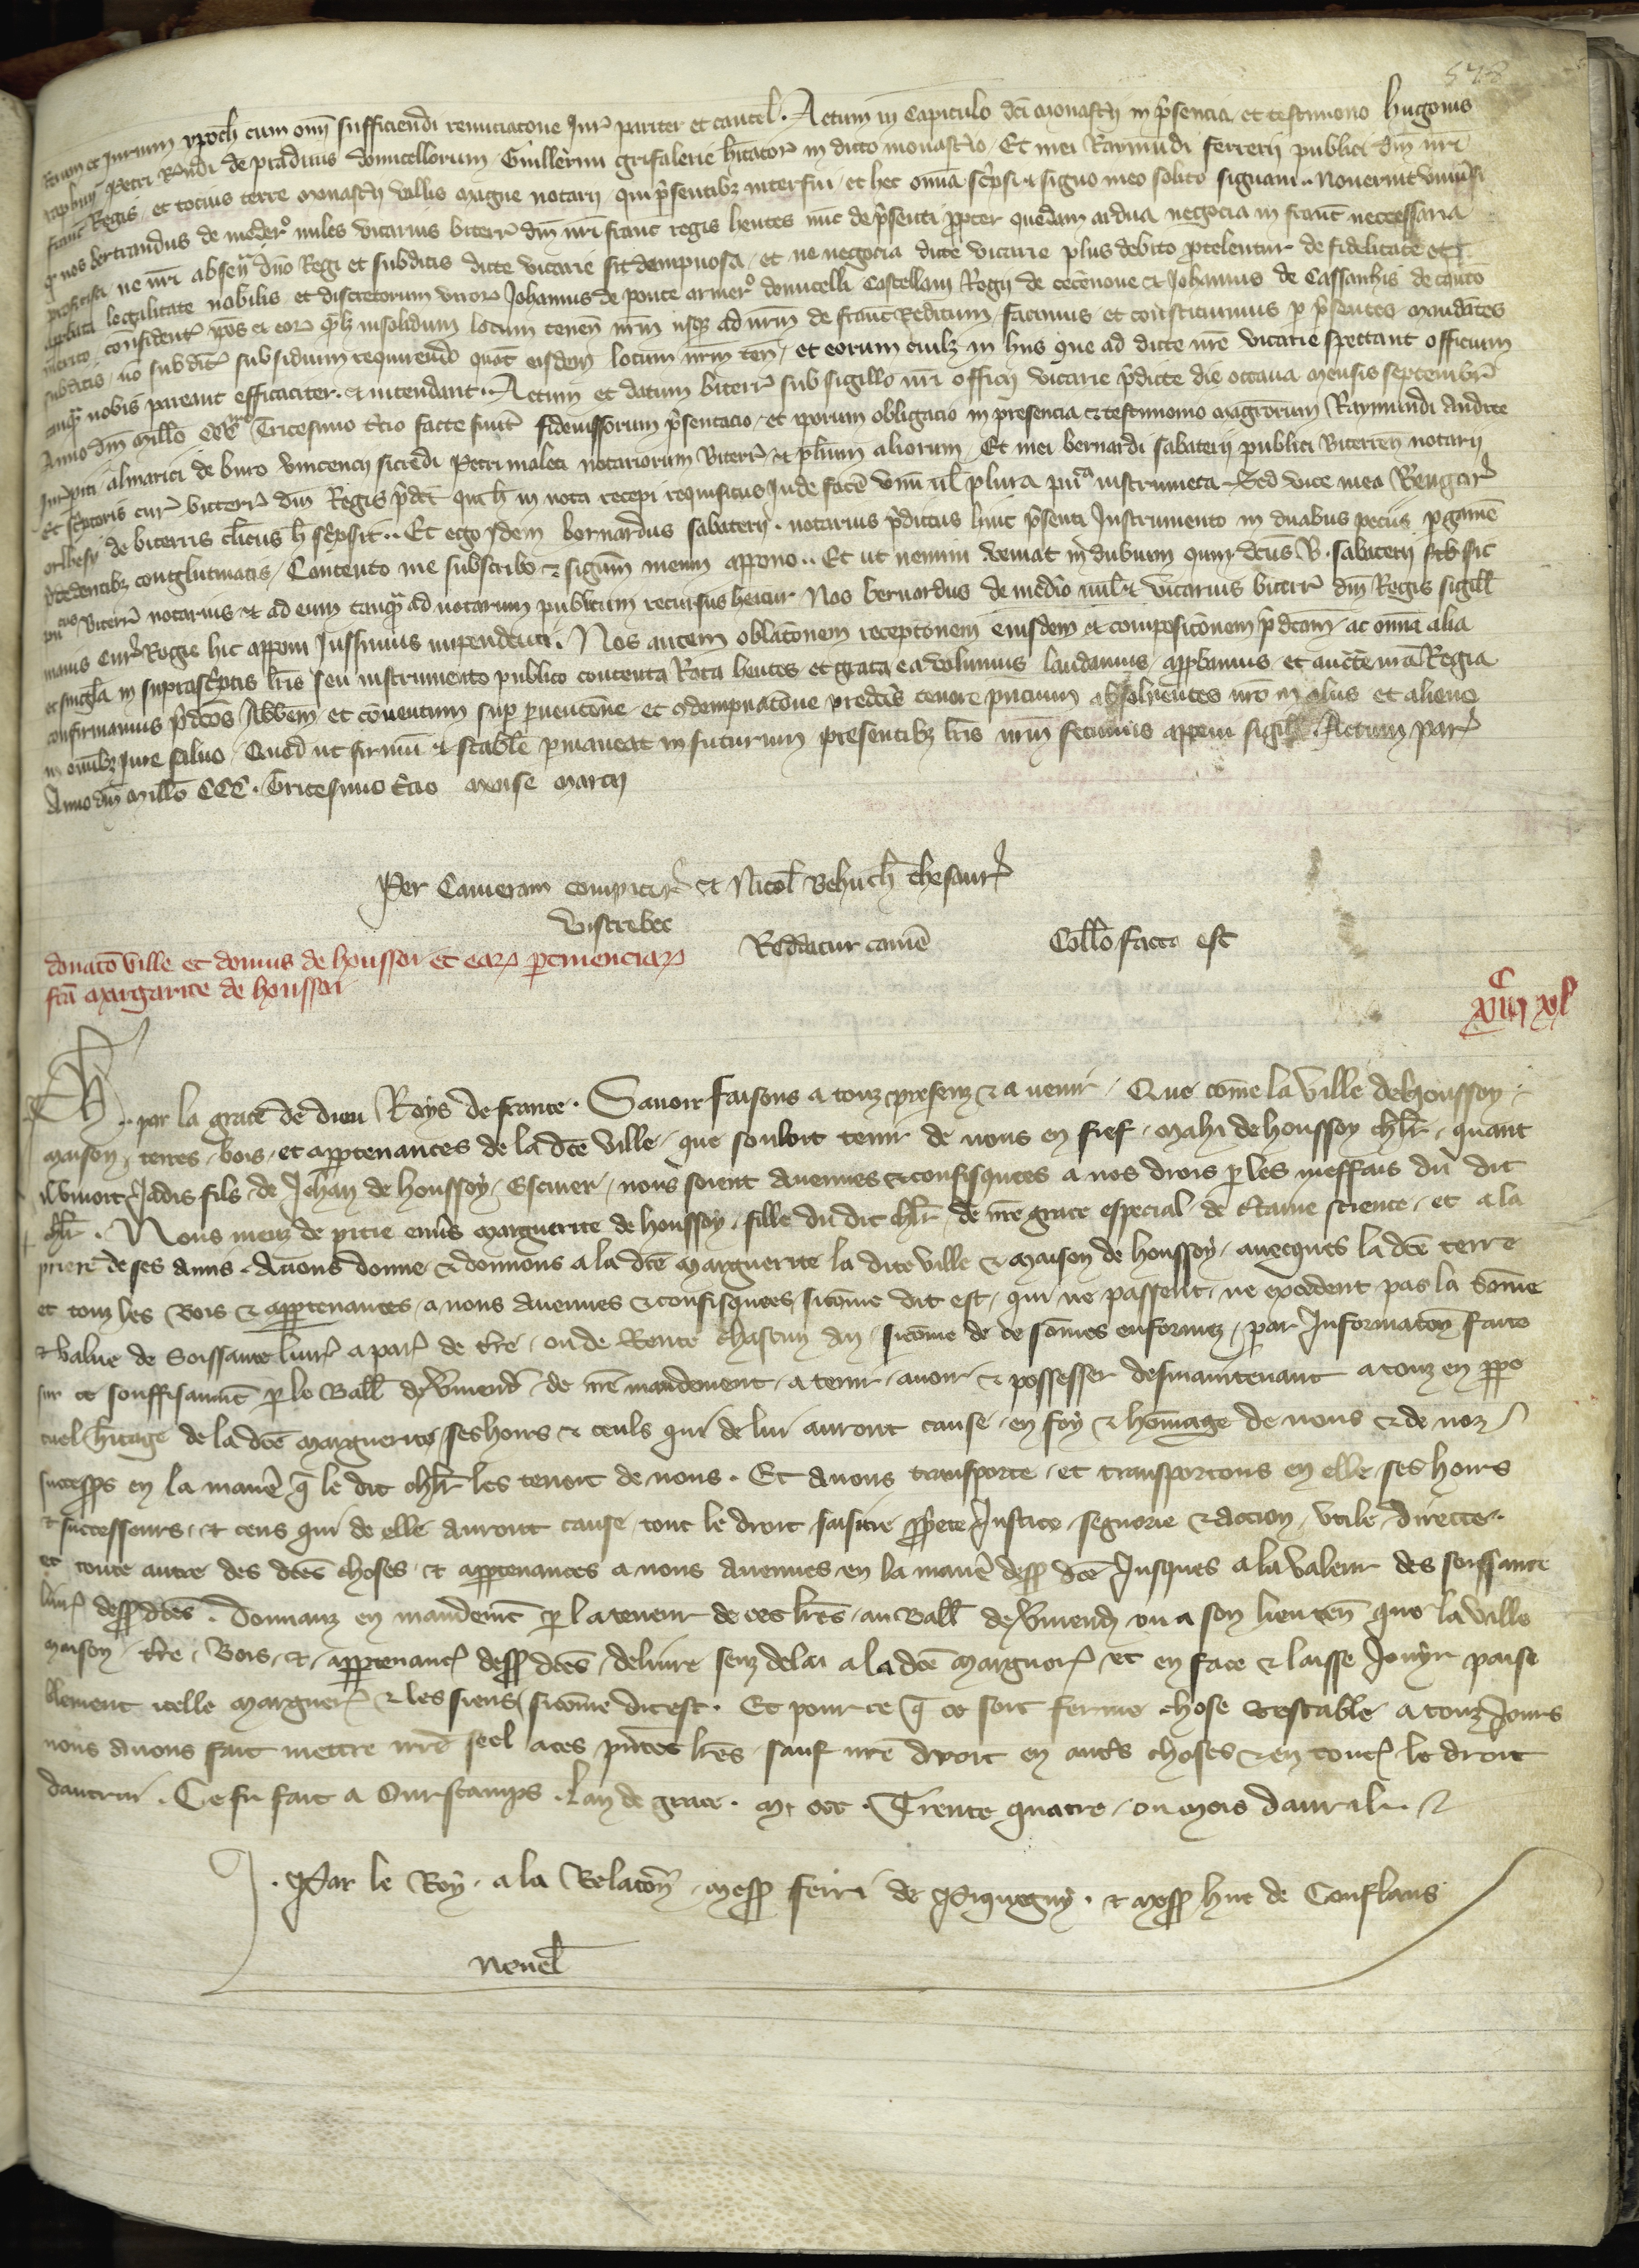 578
rerum et Jurium ypoth cum omi sufficiendi renunciacone Jur pariter et cautel. Actum in Capitulo dci monastii in psencia et testimonio hugonis
Petri Rmdi de pradinis domicellorum Guillermi grifalerie hitator in dicto monastio. Et mei Raymudi ferrerii publici dni nri
franc Regis et tocius terre monastii vallis magne notarii qui psentibz interfui et hec omia scpsi et signo meo solito signaui. Nouerint vniusi
q nos bertrandus de medero miles vicarius biterr dni nri franc regis hentes nuc de psenti ppter quedam ardua negocia in franc neccessaria
proficisci ne nri absen dno Regi et subditis dicte vicarie sit dempnosa et ne negocia dicte vicarie plus debito ptelentur de fidelitate et
legalitate nobilis et discretorum viror Johannis de ponte armero domicelli Castellani Regii de cecenone et Johannis de Cassanhis de
merito confident ipos et eor qlz insolidum locum tenen nrm usqz ad nrm de franc Reditum facimus et constituimus p psentes mandates
subditis no subdit subsidium requirendo quat eisdem locum nrm ten et eorum cuilz in hiis que ad dicte nre vicarie spectant officium
tanqz nobis pareant efficaciter et intendant. Actum et datum biterr sub sigillo nri officii vicarie pdicte die octaua mensis septembr
Anno dni millo CCC mo Tricesimo tcio facte fuit fideiussorum psentacio et ipsorum obligacio in presencia et testimonio magrorum Raymundi Andree
Jurpiti almarici de buro vincencii sicredi Petri maleti notariorum Biterr et plium aliorum Et mei bernardi sabaterii publici Biterren notarii
et scptoris cur biterr dni Regis pdct qui h in nota recepi requisitus Inde face vnu ul plura puca instrumeta Sed vice mea Rengar
orlhesii de biterris clicus h scpsit. Et ego idem bernardus sabaterii notarius pdictus huic psenti Instrumento in duabus peciis pgamen
pcedentibz conglutinatis Contento me subscribo et signum meum appono. Et ut nemini veniat in dubium quin dcus B. sabaterii sit sic
pucus Biterr notarius et ad eum tanqz ad notarium publicum recursus heatur Nos bernardus de medio mil et vicarius biterr dni Regis sigill
maius cur Regie hic apponi Jussimus inpendenti. Nos autem oblaconem recepconem eiusdem et composiconem pdcam ac omia alia
et singla in suprascptis lris seu instrumento publico contenta Rata hentes et grata ea volumus laudamus appbamus et aucte nra Regia
confirmamus pdcos Abbem et conuentum sup puencone et condempnacone predcis tenore pncium absoluentes nro in aliis et alieno
in omibz Jure saluo. Quod ut firmu et stabile pmaneat in futurum presentibz lris nrm fecimus apponi sigill. Actum par
Anno dni millo CCC. Tricesimo tcio mense marcii
Per Cameram compotor et Nicol Behuch thesaur
Vistrebec
Reddatur camere
Collo facta est
donaco ville et domus de houssoi et ear ptinenciar
fca margarite de houssoi
xiiii C xl
Ph. par la grace de dieu Roys de france. Sauoir faisons a touz presenz et a venir. Que come la ville de houssoy
maison, terres, bois, et appartenances de la dce ville, que souloit tenir de nous en fief, Mahi de houssoy chlr, quant
il viuoit, Jadis fils de Jehan de houssoy, Escuier, nous soient auenues et confisquees a nos drois p les meffais du dit
chlr. Nous meuz de pitie enus marguerite de houssoy, fille du dit chlr, de nre grace especial, de ctaine science, et a la
priere de ses amis. Auons donne et donnons a la dce marguerite la dite ville et maison de houssoy, auecques la dce terre
et touz les Bois et apptenances, a nous auenues et confisquees, sicome dit est, qui ne passent, ne excedent pas la some
et value de Soissante liur a par de tre, ou de Rente chascun an, sicome de ce somes enformez, par Informacon faite
sur ce souffisaumt p le Baill de Vmend de nre mandement, a tenir, auoir et possesser desmaintenant a touz en ppe
tuel hitage de la dce marguerite, ses hoirs et ceuls qui de lui auront cause, en foy et homage de nous et de noz
successrs en la manie q le dit chlr les tenoit de nous. Et auons transporte, et transportons en elle, ses hoirs
et successeurs, et ceus qui de elle auront cause, tout le droit, saisine ppriete Justice, segnorie et action, vtile, directe
et toute autre des dces choses, et apptenances a nous auenues en la manie dess dce Jusques a la valeur des soissante
liur dess dces. Donnanz en mandemt p la teneur de ces lres, au Baill de Vmend, ou a son lieuten que la ville
maison, tre, Bois, et apptenanc dess dces, deliure senz delai a la dce marguer, et en face et laisse Jouyr paisi
blement icelle marguer et les siens, sicome dit est. Et pour ce q ce soit ferme chose et estable a touz Jours
nous auons fait mettre nre seel a ces pntes lres, sauf nre droit en autres choses et en tout le droit
dautrui. Ce fu fait a Ourscamps. Lan de grace. M. CCC. Trente quatre, ou mois dauril.
Par le Roy, a la Relacon, mess ferri de Piquegny, et mess hue de Conflans
Nouel